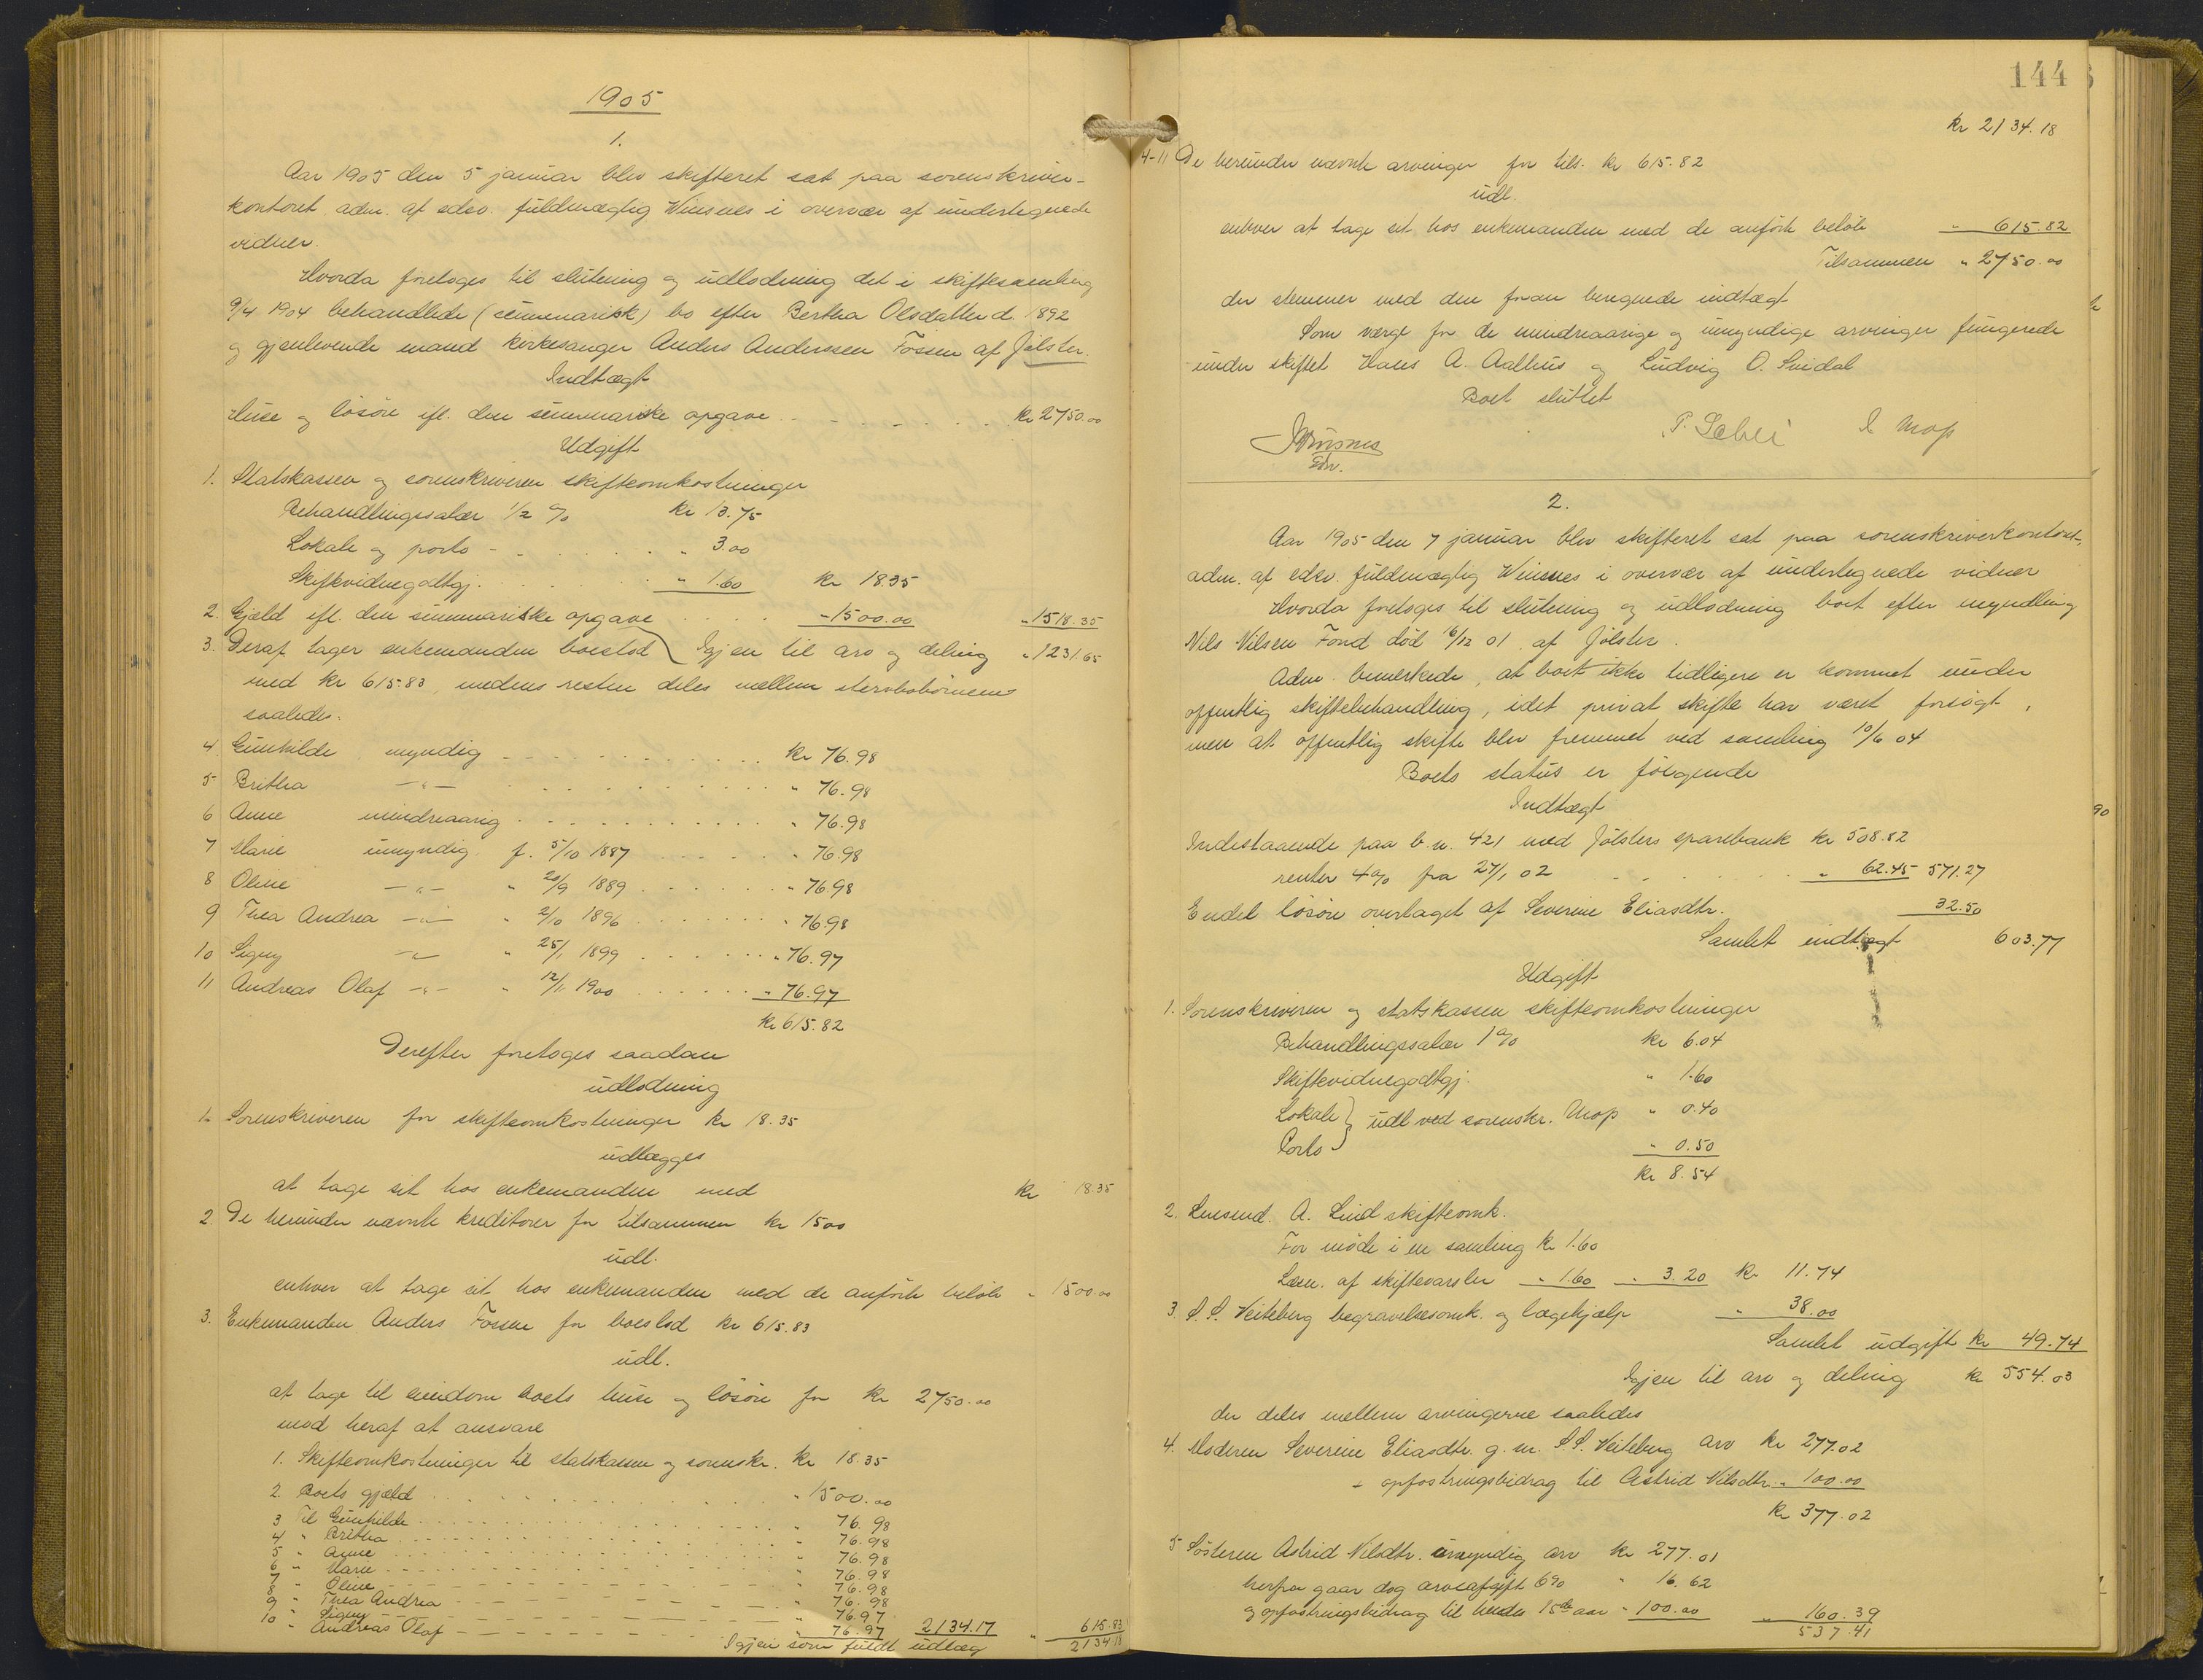 1905
1.
Aar 1905 den 5 januar blev skifteret sat paa sorenskriver-
kontoret adm. af edsv. fuldmægtig Winsnes i overvær af undertegnede
vidner.
Hvorda foretoges til slutning og udlodning det i skiftesamling
9/4 1904 behandlede (summarisk) bo efter Bertha Olsdatter d. 1892
og gjenlevende mand kirkesanger Anders Anderssen Fossen af Jølster.
Indtægt
Huse og løsøre ifl. den summariske opgave . . . . . . . kr 2750.00
Udgift
1. Statskassen og sorenskriveren skifteomkostninger
Behandlingssalær 1/2 % kr 13.75
Lokale og porto - . . . . " 3.00
Skiftevidnegodtgj. . . . . . " 1.60 kr 18.35
2. Gjæld ifl. den summariske opgave . . . . - 1500.00 " 1518.35
3. Deraf tager enkemanden boeslod Igjen til arv og deling " 1231.65
med kr 615.83, medens resten deles mellem stervbobørnene
saaledes.
4 Gunhilde myndig . . . . . . . . kr 76.98
5 Britha -"- . . . . . . . . " 76.98
6 Anne mindreaarig . . . . . . . " 76.98
7 Marie umyndig f. 5/10 1887 . . . . " 76.98
8 Oline -"- " 20/9 1889 . . . . . " 76.98
9 Thea Andrea -"- " 2/10 1896 . . . . . " 76.98
10 Signy -"- " 25/1 1899 . . . . . " 76.97
11 Andreas Olaf -"- " 12/11 1900 . . . . . " 76.97
kr 615.82
Derefter foretoges saadan
udlodning
1. Sorenskriveren for skifteomkostninger kr 18.35
udlægges
at tage sit hos enkemanden med kr 18.35
2. De herunder nævnte kreditorer for tilsammen kr 1500
udl.
enhver at tage sit hos enkemanden med de anførte beløb " 1500.00
3. Enkemanden Anders Fossen for boeslod kr 615.83
udl.
at tage til eiendom boets huse og løsøre for kr 2750.00
mod heraf at ansvare
1. Skifteomkostninger til statskassen og sorenskr. kr 18.35
2. Boets gjæld . . . . . . . . " 1500.00
3 Til Gunhilde . . . . . . . . 76.98
4 " Britha . . . . . . . . " 76.98
5 " Anne . . . . . . . . " 76.98
6 " Marie . . . . . . . . " 76.98
7 " Oline . . . . . . . . " 76.98
8 " Thea Andrea . . . . . . . . " 76.98
9 " Signy . . . . . . . . " 76.97
10 " Andreas Olaf . . . . . . . . " 76.97 2134.17 " 615.83
Igjen som fuldt udlæg 2134.18
144
kr 2134.18
4-11 De herunder nævnte arvinger for tils. kr 615.82
udl.
enhver at tage sit hos enkemanden med de anførte beløb " 615.82
Tilsammen " 2750.00
der stemmer med den foran beregnede indtægt
Som værge for de mindreaarige og umyndige arvinger fungerede
under skiftet Hans A. Aalhus og Ludvig O. Svidal
Boet sluttet
Winsnes
Edsv.
2.
Aar 1905 den 7 januar blev skifteret sat paa sorenskriverkontoret,
adm. af edsv. fuldmægtig Winsnes i overvær af undertegnede vidner
Hvorda foretoges til slutning og udlodning boet efter myndling
Nils Nilsen Fond død 16/12 01 af Jølster.
Adm. bemerkede, at boet ikke tidligere er kommet under
offentlig skiftebehandling, idet privat skifte har været forsøgt,
men at offentlig skifte blev fremmet ved samling 10/6 04
Boets status er følgende
Indtægt
Indestaaende paa b.n. 421 med Jølsters sparebank kr 508.82
renter 4% fra 27/1 02 . . . . . " 62.45 571.27
Endel løsøre overtaget af Severine Eliasdtr. 32.50
Samlet indtægt 603.77
Udgift
1. Sorenskriveren og statskassen skifteomkostninger
Behandlingssalær 1% kr 6.04
Skiftevidnegodtgj. " 1.60
Lokale } udl ved sorenskr. " 0.40
Porto " 0.50
kr 8.54
2. Lensmd. A. Lind skifteomk.
For møde i en samling kr 1.60
Læsn. af skiftevarsler " 1.60 " 3.20 kr 11.74
3. S. S. Veiteberg begravelsesomk. og lægehjælp " 38.00
Samlet udgift kr 49.74
Igjen til arv og deling kr 554.03
der deles mellem arvingerne saaledes
4. Moderen Severine Eliasdtr. g.m. S. S. Veiteberg arv kr 277.02
+ opfostringsbidrag til Astrid Nilsdtr. " 100.00
kr 377.02
5 Søsteren Astrid Nilsdtr. umyndig arv kr 277.01
herfra gaar dog arveafgift 6% " 16.62
og opfostringsbidrag til hendes 15de aar " 100.00 " 160.39
537.41